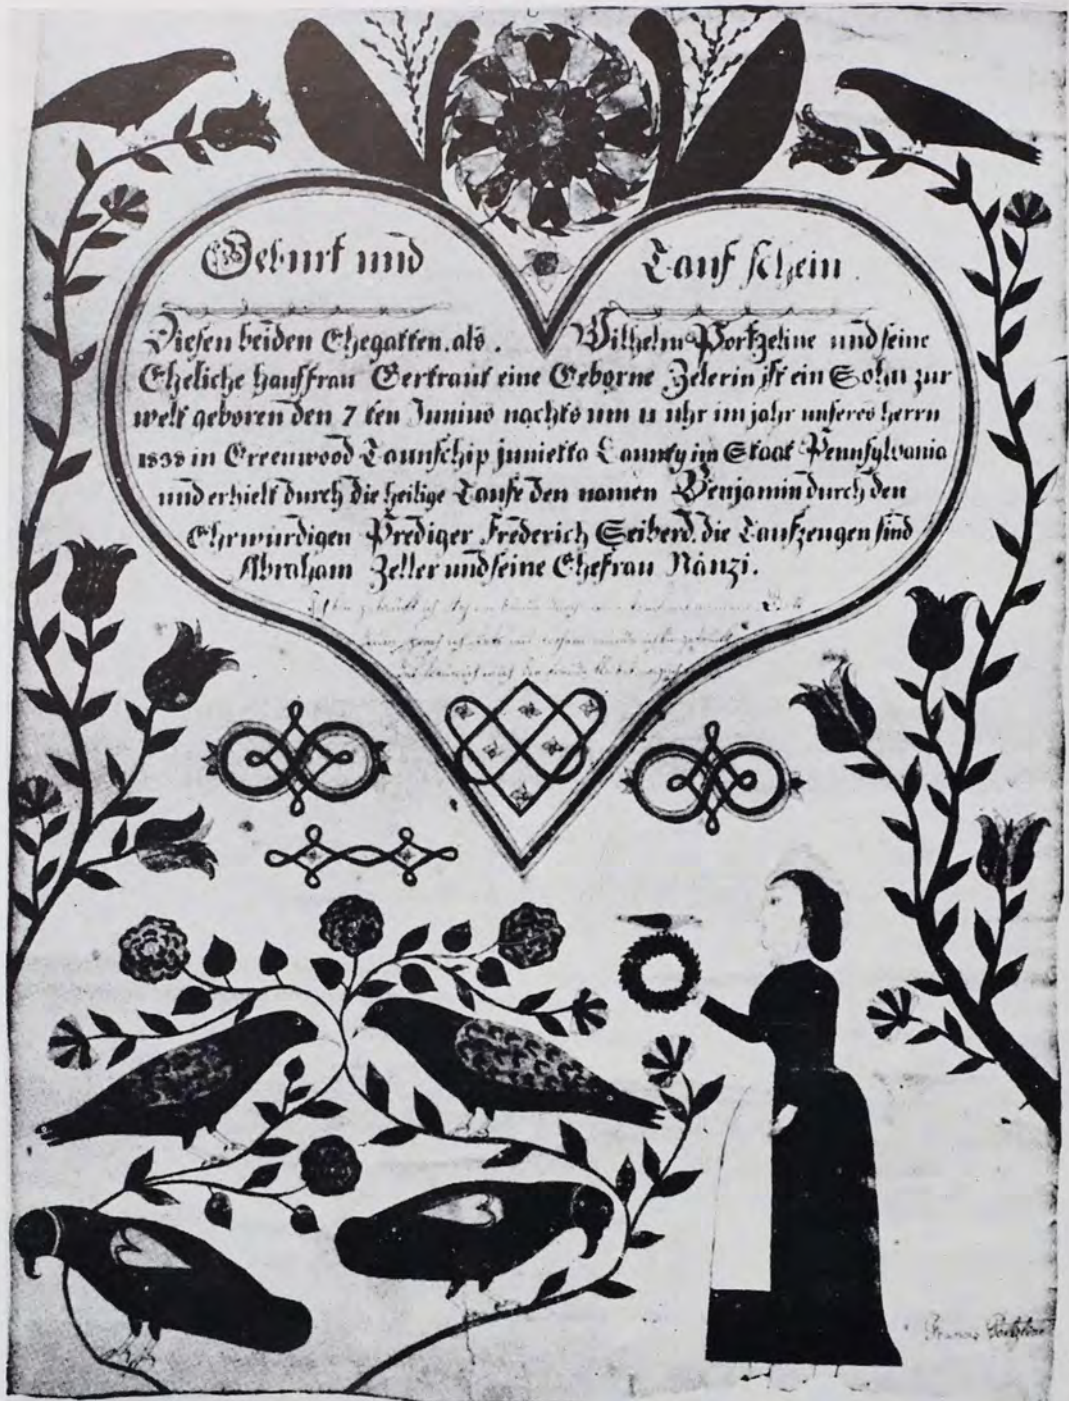 Geburt und Tauf schein.
Diesen beiden Ehegatten. als. Wilhelm Portzeline und seine
Eheliche Haussfrau Gertraut eine Geborne Zelerin ist ein Sohn zur
welt geboren den 7 ten Junius nachts um 11 uhr im jahr unseres herrn
1838 in Greenwood Taunschip junietta Caunty im Staat Pennsylvania
und erhielt durch die heilige Taufe den namen Benjamin durch den
Ehrwürdigen Prediger Frederich Seiberd. die Taufzeugen sind
Abraham Zeller und seine Ehefrau Nänzi.
Ich bin getauft ich steh im bunde durch meine tauf mit meinem Gott
Francis Portzeline